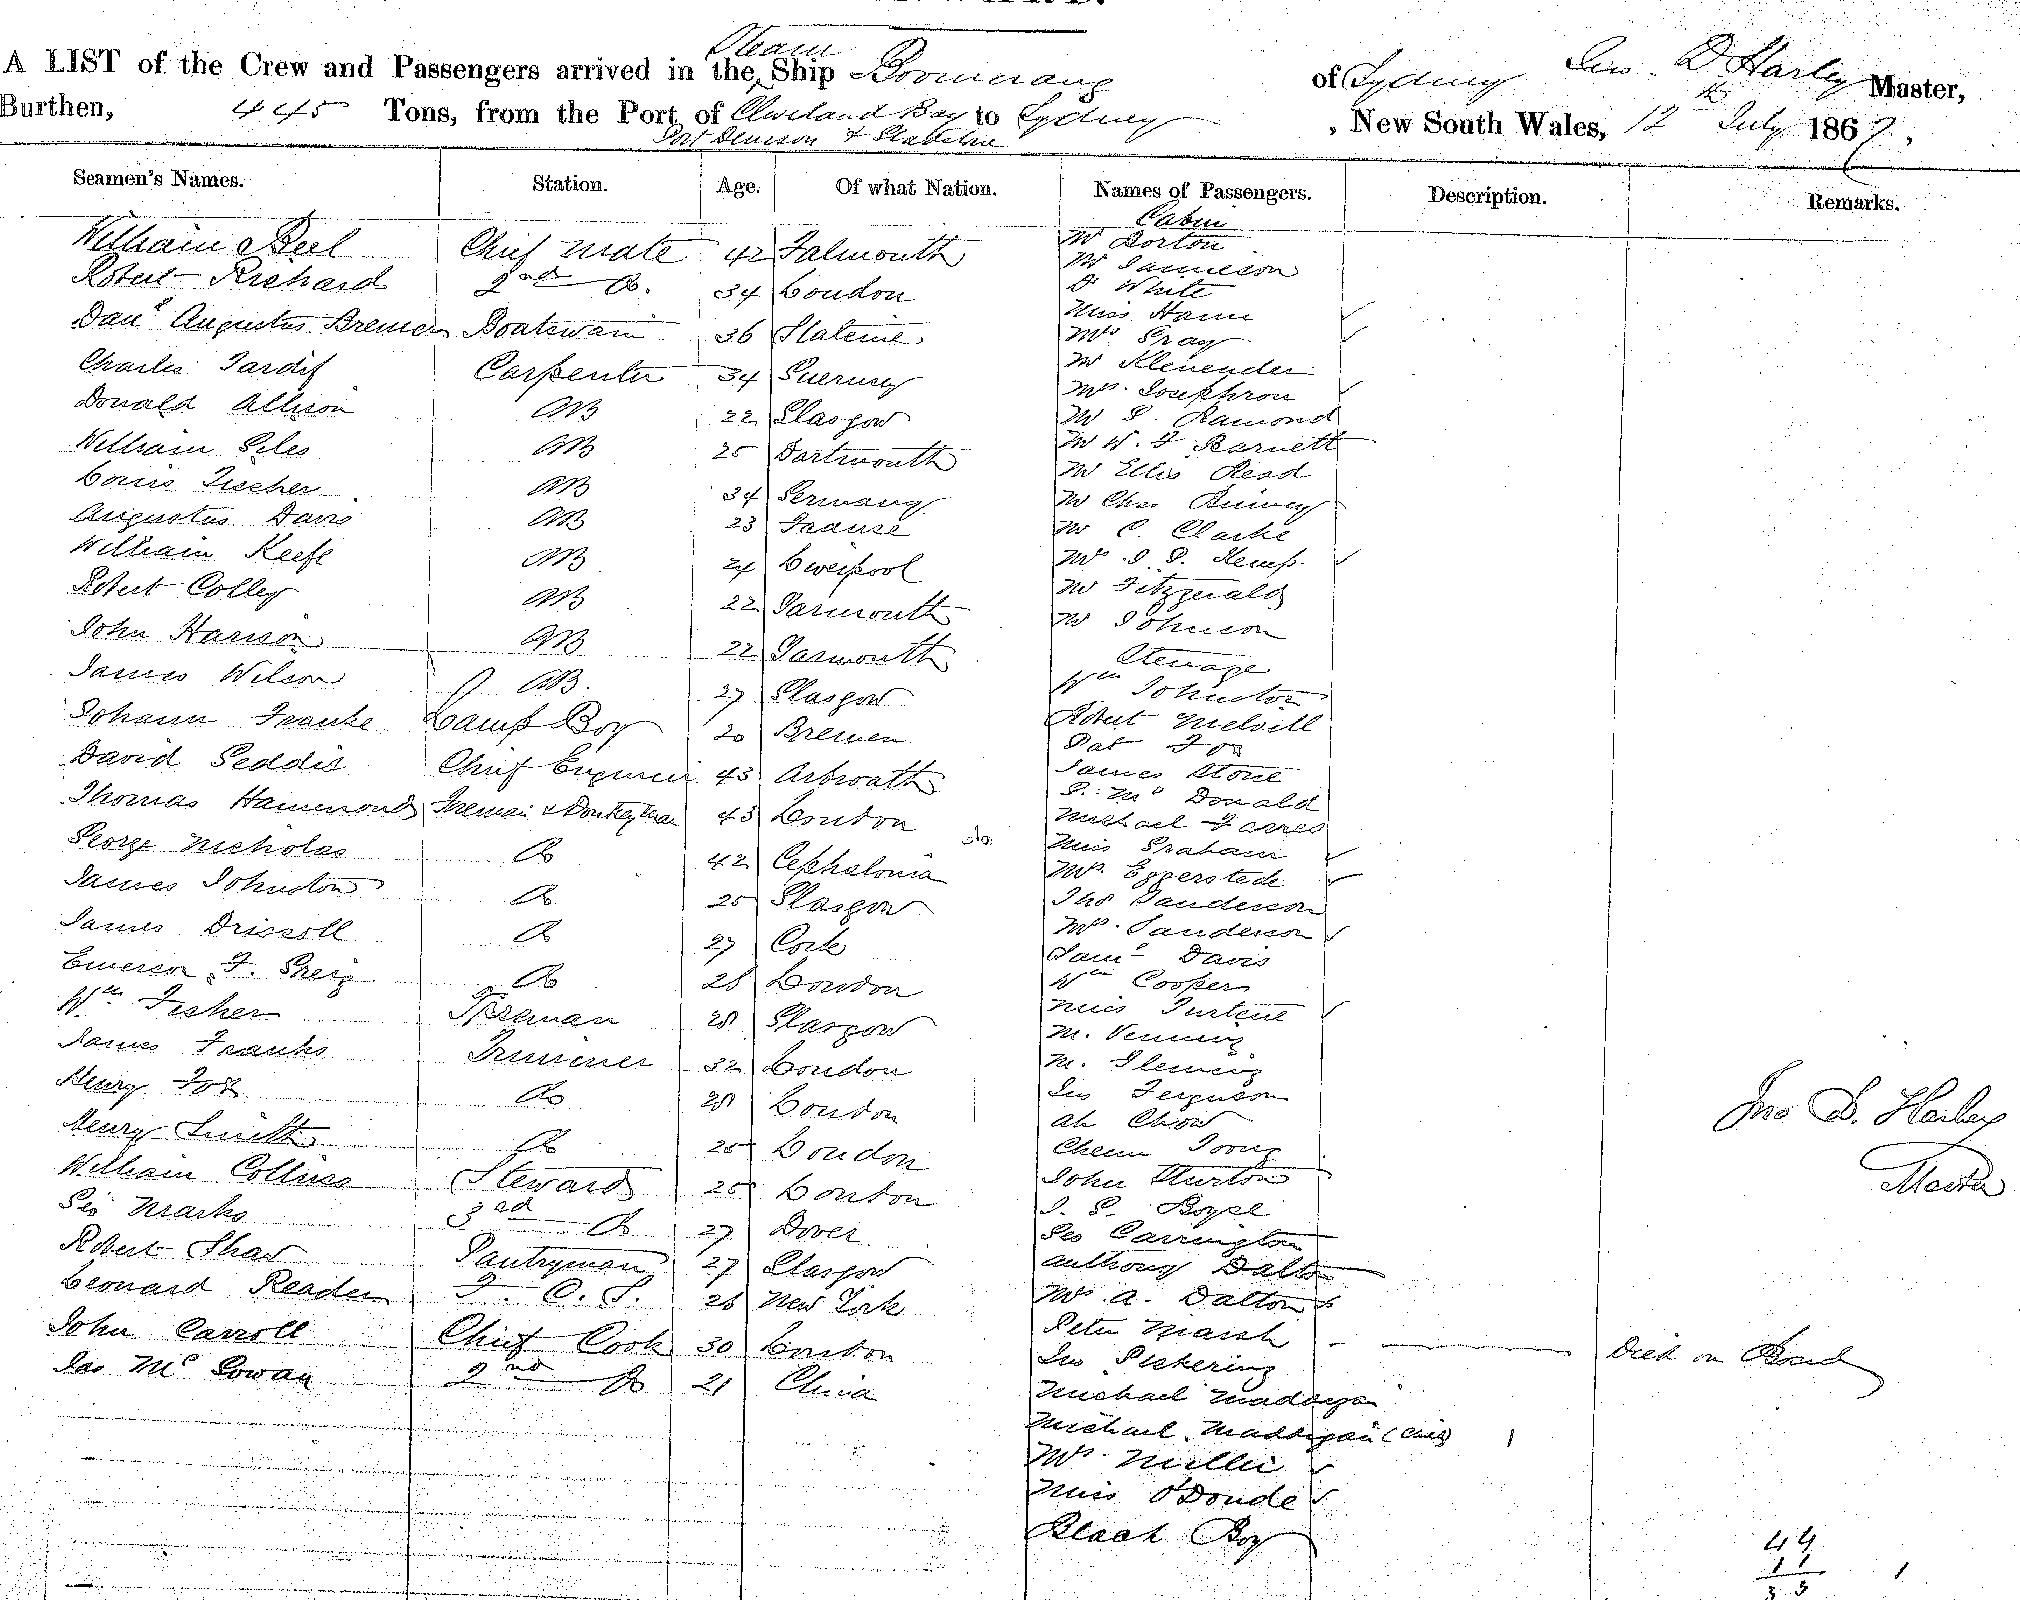 A LIST of the Crew and Passengers arrived in the Steam Ship Boomerang of Sydney Jno. D Harley Master,
Burthen, 445 Tons, from the Port of Cleveland Bay to Sydney, New South Wales, 12th July 1867.
Port Denison & Gladstone
Seamen's Names. Station. Age. Of what Nation. Names of Passengers. Description. Remarks.
Cabin
William Beel Chief Mate 42 Falmouth Mr Borton
Mr Jamieson
Robert Richard 2nd Do. 34 London Dr White
Miss Hann
Danl Augustus Bremer Boatswain 36 Mrs Gray
Charles Tardif Carpenter 34 Guernsey Mr Klenender
Mrs Josephron
Donald Allison AB 22 Glasgow Mr S. Ramond
William Giles AB 25 Dartmouth Mr W. F Barnett
Mr Ellis Read
Louis Fischer AB 34 Germany Mr Chas
Augustus Davis AB 23 France Mr C. Clarke
William Keefe AB 24 Liverpool Mrs Kemp.
Robert Colley AB 22 Yarmouth Mr Fitzgerald
John Harrison AB 22 Yarmouth Mr Johnson
Steerage
James Wilson AB. 27 Glasgow Wm Johnston
Johann Franke Lamp Boy 20 Bremen Robert Melvill
Pat Fox
David Geddis Chief Engineer 43 Arbroath James Stone
Mc Donald
Thomas Hammond Fireman & Donkeyman 43 London Michael
George Nicholas Do 42 Cephalonia Miss Graham
Mrs Eggerstede
James Johnston Do 25 Glasgow Thos Sanderson
James Driscoll Do 27 Cork Mrs Sanderson
Saml Davis
Emerson F. Do 28 London Wm Cooper
Wm Fisher Fireman 28 Glasgow Miss
M. Venning
James Franks Trimmer 32 London M. Fleming
Henry Fox Do 28 London Jno Ferguson
Ah Chow
Henry Smith Do 25 London
Jno D. Harley
Master
William Collins Steward 25 London John Hurton
Geo Marks 3rd Do 27 Dover Boyce
Geo Carrington
Robert Shaw Pantryman 27 Glasgow Anthony Dalton
Leonard Reader F. C. S. 26 New York Mrs A. Dalton
John Carroll Chief Cook 30 London Peter Marsh Died on Board
Jno Pickering
Jas Mc Gowan 2nd Do 21 China Michael Maddigan
Michael Maddigan (Child) 1
Mrs Miller
Miss O'Donde
Black Boy
44
11